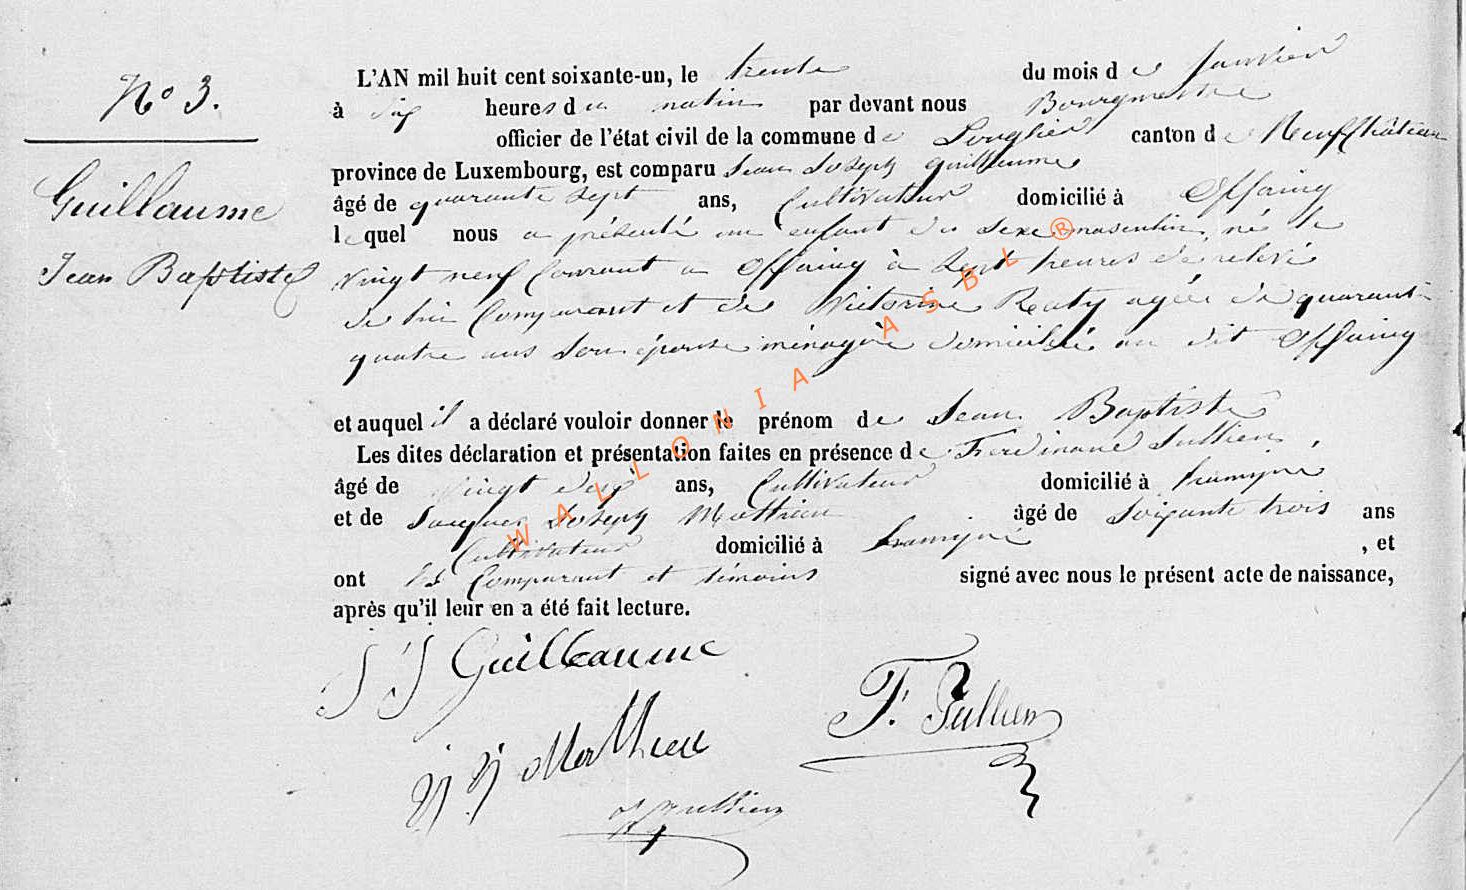 N° 3.
Guillaume
Jean Baptiste
L'AN mil huit cent soixante-un, le trente du mois de Janvier
à dix heures du matin par devant nous Bourgmestre
officier de l'état civil de la commune de Longlier canton de Neufchâteau
province de Luxembourg, est comparu Jean Joseph Guillaume
âgé de quarante sept ans, Cultivateur domicilié à Offaing
lequel nous a présenté un enfant du sexe masculin, né le
vingt neuf Courant a Offaing à sept heures de relevé
de lui Comparant et de Victorine Reaty agée de quarante
quatre ans son épouse ménagère domiciliée au dit Offaing
et auquel il a déclaré vouloir donner le prénom de Jean Baptiste
Les dites déclaration et présentation faites en présence de Ferdinand Jullien,
âgé de vingt deux ans, Cultivateur domicilié à
et de Jacques Joseph Mathieu âgé de soixante trois ans
Cultivateur domicilié à , et
ont les Comparant et témoins signé avec nous le présent acte de naissance,
après qu'il leur en a été fait lecture.
J J Guillaume
F. Jullien
J J Mathieu
Jullien
WALLONIA ASBL ®